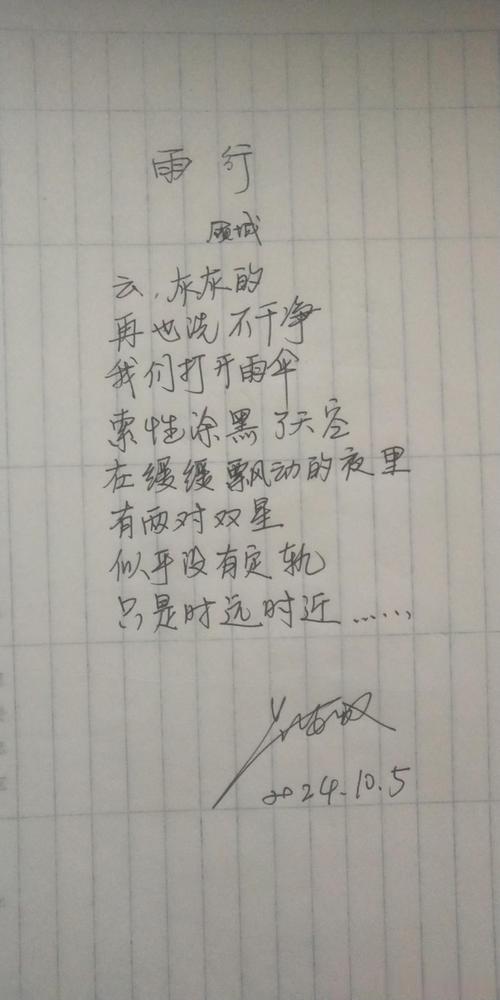 雨 行
顾城
云，灰灰的
再也洗不干净
我们打开雨伞
索性涂黑了天空
在缓缓飘动的夜里
有两对双星
似乎没有定轨
只是时远时近……
2024.10.5